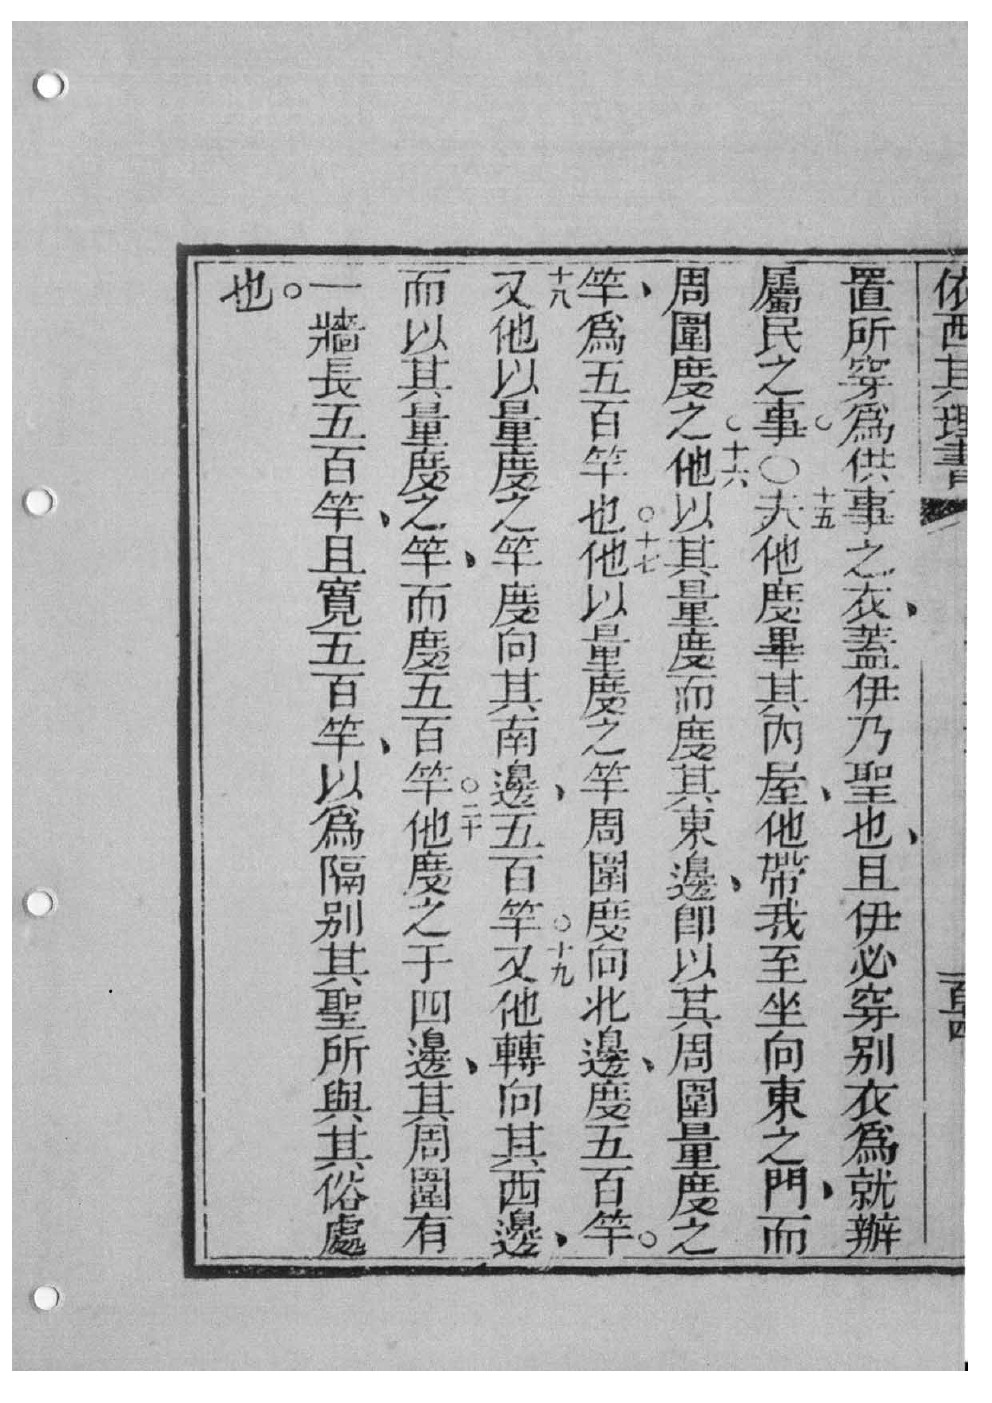 依西其理書
百四
置所穿爲供事之衣、蓋伊乃聖也、且伊必穿別衣爲就辦
屬民之事。○十五夫他度畢其內屋、他帶我至坐向東之門、而
周圍度之。十六他以其量度而度其東邊、卽以其周圍量度之
竿、爲五百竿也。十七他以量度之竿周圍度向北邊、度五百竿。
十八又他以量度之竿度向其南邊、五百竿。十九又他轉向其西邊、
而以其量度之竿、而度五百竿。二十他度之于四邊、其周圍有
一牆長五百竿、且寬五百竿、以爲隔別其聖所與其俗處
也。